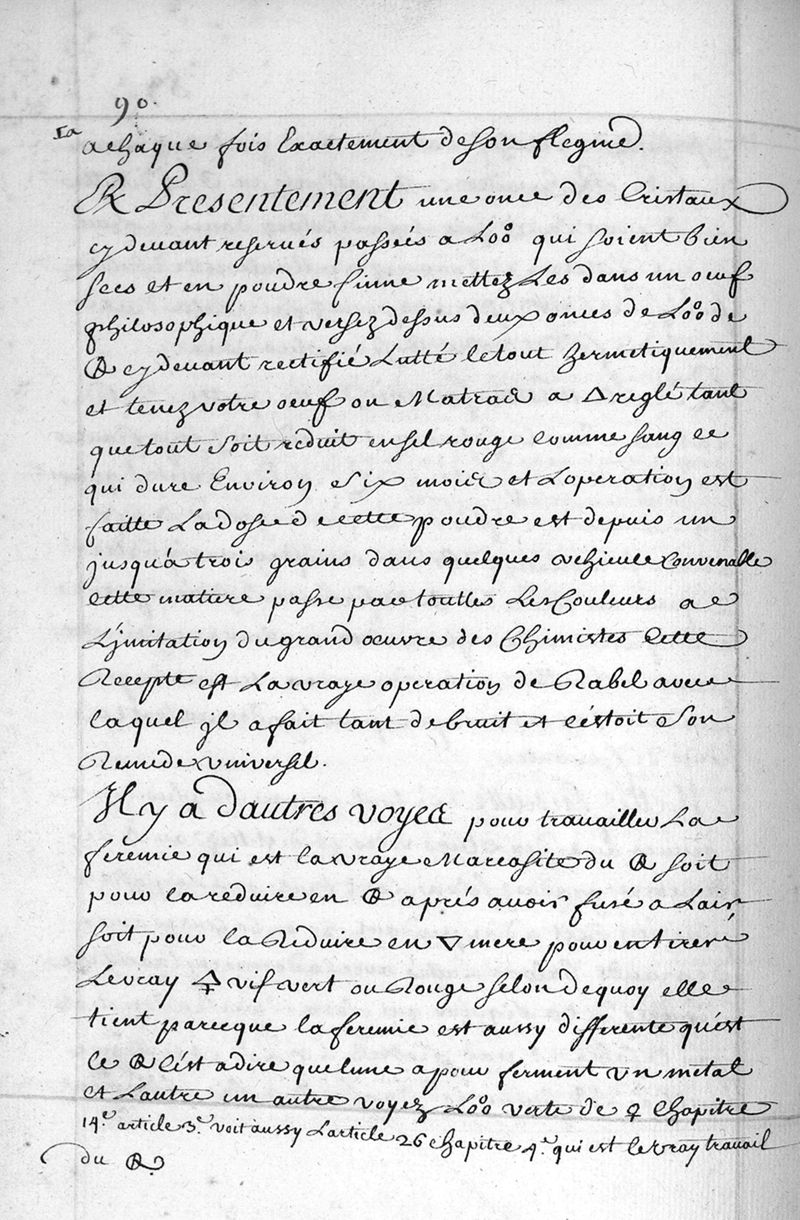 90.
a chaque fois Exactement de son flegme.
℞ Presentement une once des Cristaux
cy devant reservés passées a Loo qui soient bien
secs et en poudre finne mettez Les dans un oeuf
philosophique et versez dessus deux onces de Loo de
cy devant rectifié Lutté le tout hermetiquement
et tenez votre oeuf ou Matras a △ reglé tant
que tout soit reduit en sel rouge comme sang ce
qui dure Environ six mois et Loperation est
faitte La dose de cette poudre est depuis un
jusqu'a trois grains dans quelques vehicule convenable
cette matiere passe par touttes Les Couleurs a
L'jmitation du grand œuvre des Chimistes Cette
Recepte est La vraye operation de Rabel avec
laquel jl a fait tant de bruit et c'éstoit Son
Remede vniversel.
Il y a d'autres voyes pour travailler La
feremie qui est la vraye Marcasite du soit
pour la réduire en aprés avoir fusé a Lair
soit pour la Reduire en ▽ mere pour en tirer
Le vray 🜍 vif vert ou Rouge selon de quoy elle
tient parceque la feremie est aussy differente qu'est
le c'ést a dire que lune a pour ferment vn metal
et Lautre un autre voyez Loo verte de ♀ Chapitre
14.e article 3.e voit aussy Larticle 26 chapitre 4.e qui est le vray travail
du